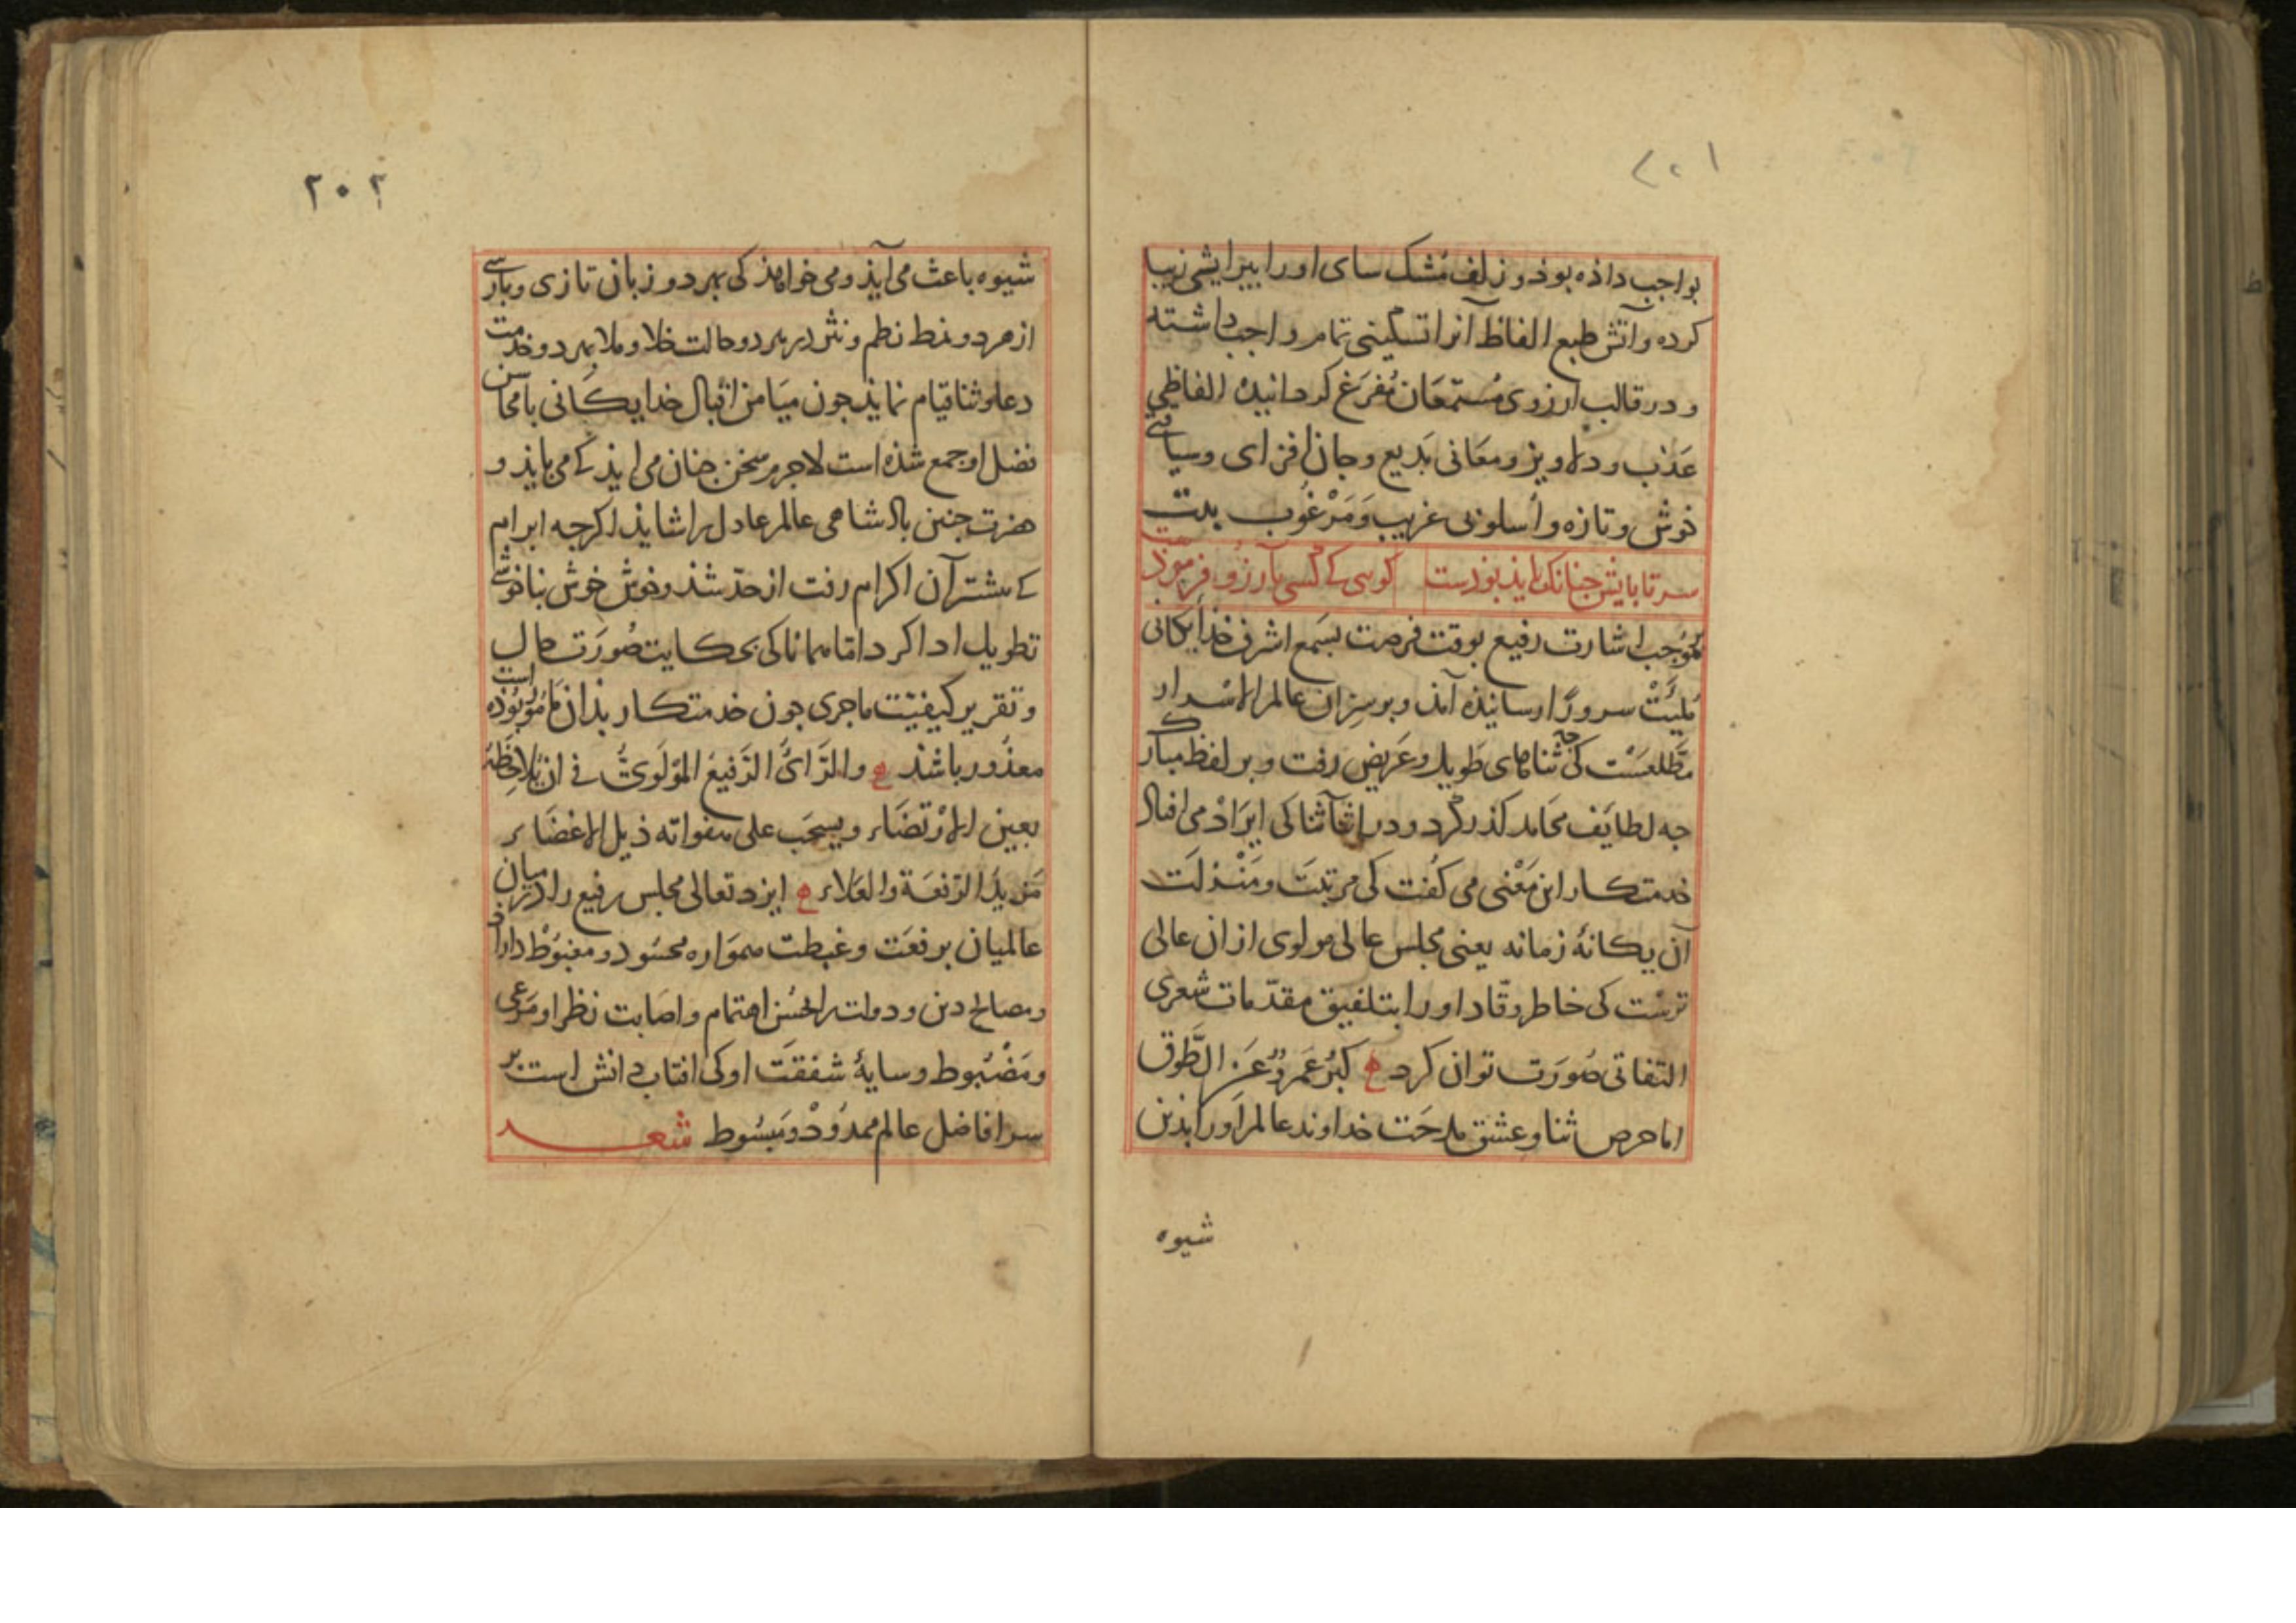 ۲۰۱
بواجب داذه بوذ و زلف مُشک سای او را بپیرایشی زیبا
کرده و آتش طبع الفاظ آنرا تسکینی تمام واجب داشته
و در قالب آرزوی مُستمعَان مُفرَغ کردانیده الفاظی
عَذب و دلاویز و معَانی بَدیع و جان افزای و سیاقتی
خوش و تازه و أسلوبی غریب وَمَرْغُوب بیت
سرتابایش جنانک باید بوذست کوی کسی بآرزو فرموذست
بموُجب اشارت رفیع بوقت فرصت بسَمع اشرف خذایکانی
مُلیَّتْ سرورًا رسانیذه آمذ و بر سِرّان عالم الاسْرار
مطّلعسْت کی جه ثناهای طَویل و عَریض رفت و بر لفظ مبارک
جه لطایَف محَامد کذر کرد و در اثنا آثنا کی ایرَاذ می افتاذ
خدمتکار این مَعْنی می کفت کی مرتبَت و مَنْزلَت
آن یکانهٔ زمانه یعنی مجلس عالی مولوی از ان عالی
ترسْت کی خاطر وقّاد او را بتلفیق مقدّمات شعری
التفاتی صُورَت توان کرد ع کبُرَ عَمرٌو عَن الطَّوق
اما حرص ثنا و عشق مدحَت خداوند عالم او را بذین
شیوه
۲۰۲
شیوه باعث می آیذ و می خواهذ کی بهر دو زبان تازی و بارسی
از هر دو نمط نظم و نثر در هر دو حالت خلا و ملا بهر دو خدمت
دعا و ثنا قیام نمایذ جون میَامن اقبال خدایکَانی با محاسن
فضل او جمع شذه است لاجرم سخن جنان می ایذ کے می بایذ و
حضرت جنین باذشاهی عالم عادل را شایذ اکرجه ابرام
کے مشتر آن اکرام رفت از حدّ شذ و خوش خوش بناخوشی
تطویل ادا کرد امّا همانا کی بحکایت صُورَت حال
و تقریر کیفیّت ماجری جون خدمتکار بذان مَأمُوْر بُوذه است
معذُور باشذ ع والرَّائُ الرَّفیعُ المَوْلَوِیُّ فی ان یُلاحِظَهُ
بعین الارْتضَاء و یسحَب علی هفواته ذیل الاغضَاء
مَزیدَ الرّفعَة والعَلاء ع ایزد تعالی مجلس رفیع را در میان
عالمیان برفعَت و غبطت همَواره محسُود و مغبُوْط داراذ
و مصالح دین و دولت را بحُسْن اهتمام و اصَابت نظر او مَرعی
و مَضْبُوط و سایهٔ شفقَت او کی افتاب دانش است بر
سر افاضل عالم ممدُوْدْ و مَبسُوط شعـــر